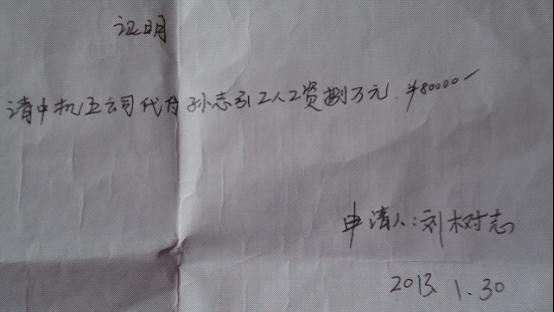 证明
请中机五公司代付孙志引工人工资捌万元.￥80000－
申请人:刘树志
2013. 1.30